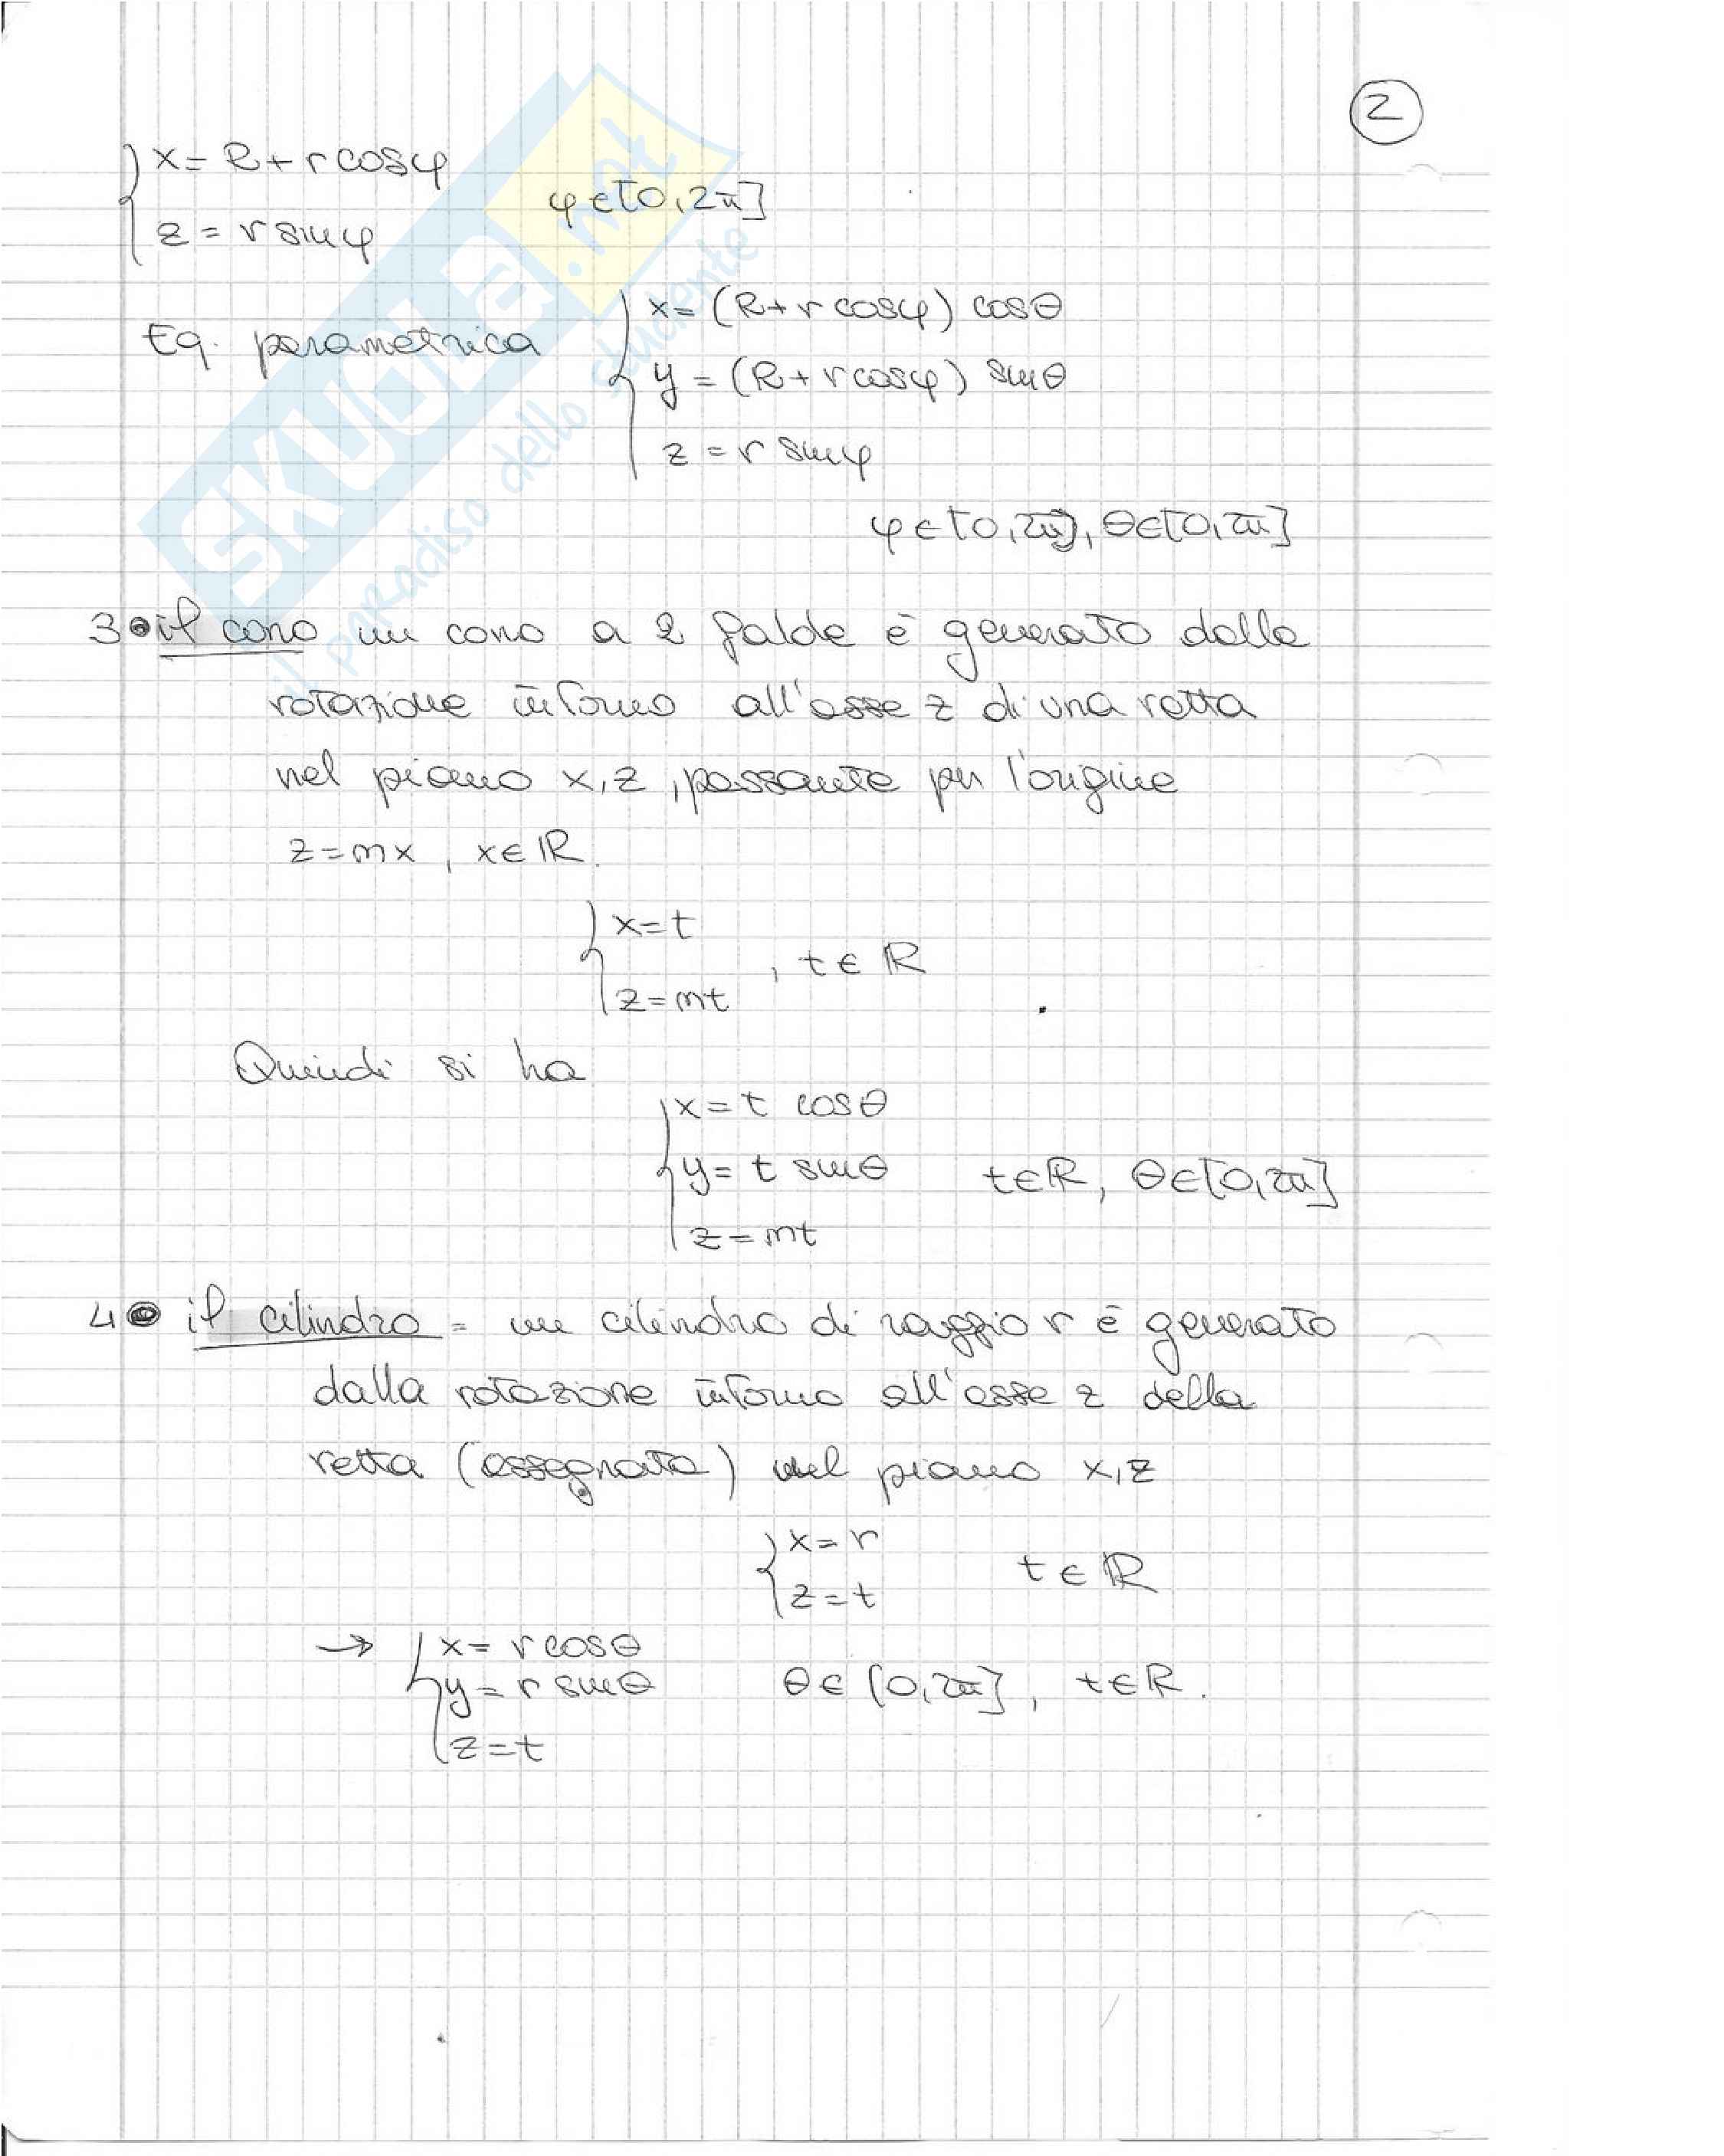 2
x = R + r cosφ
z = r sinφ
φ ∈ [0, 2π]
Eq. parametrica
x = (R + r cosφ) cosθ
y = (R + r cosφ) sinθ
z = r sinφ
φ ∈ [0, 2π], θ ∈ [0, 2π]
3 il cono un cono a 2 falde è generato dalla
rotazione intorno all'asse z di una retta
nel piano x,z, passante per l'origine
z = mx, x ∈ ℝ.
x = t
z = mt
, t ∈ ℝ
Quindi si ha
x = t cosθ
y = t sinθ t ∈ ℝ, θ ∈ [0, 2π]
z = mt
4 il cilindro = un cilindro di raggio r è generato
dalla rotazione intorno all'asse z della
retta (assegnata) nel piano x,z
x = r
z = t
t ∈ ℝ
→ x = r cosθ
y = r sinθ θ ∈ [0, 2π], t ∈ ℝ.
z = t
SKUOLA.net
il paradiso dello studente